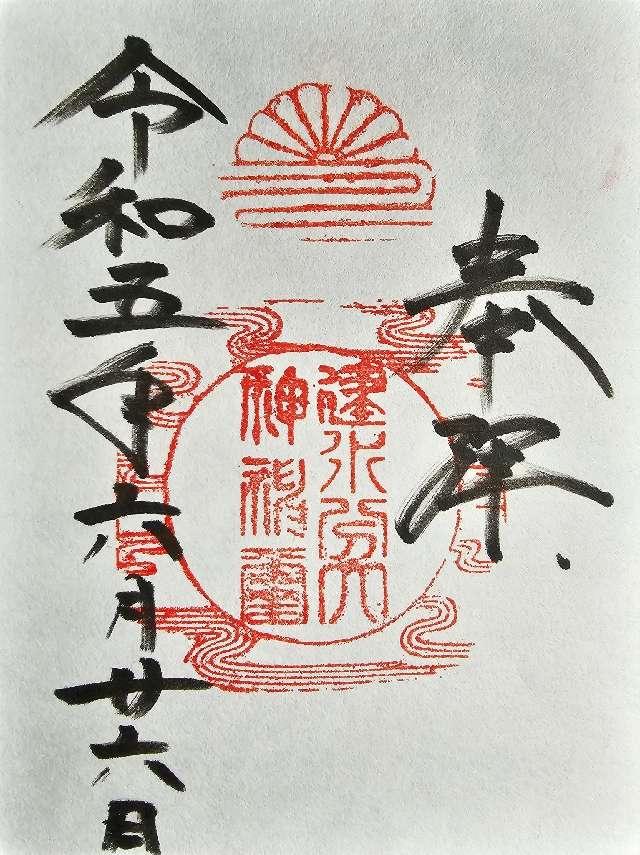 奉拝
建水分
神社
令和五年六月廿六日